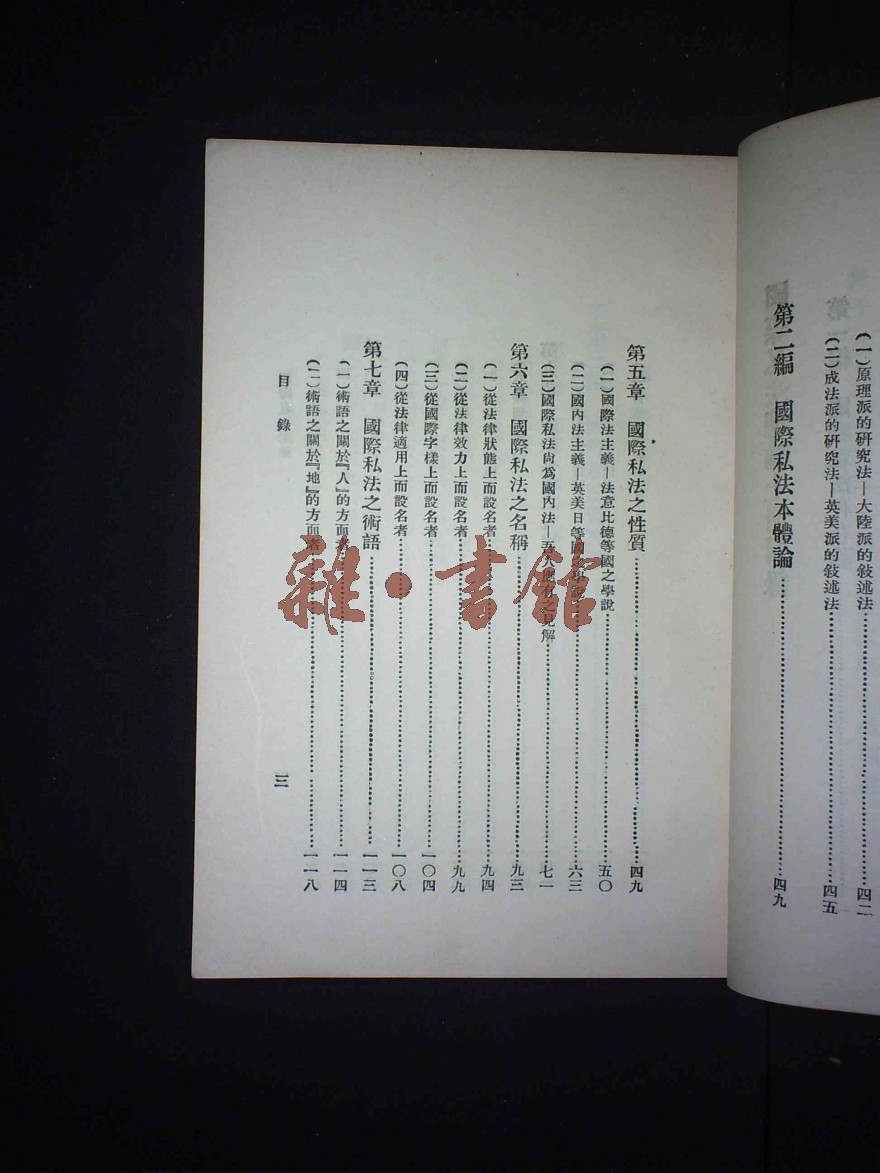 (一)原理派的研究法—大陸派的敍述法……四二
(二)成法派的研究法—英美派的敍述法……四五
第二編 國際私法本體論……四九
第五章 國際私法之性質……四九
(一)國際法主義—法意比德等國之學說……五〇
(二)國內法主義—英美日等國之學說……六三
(三)國際私法尙爲國內法—吾人應有之見解……七一
第六章 國際私法之名稱……九三
(一)從法律狀態上而設名者……九四
(二)從法律效力上而設名者……九九
(三)從國際字樣上而設名者……一〇四
(四)從法律適用上而設名者……一〇八
第七章 國際私法之術語……一一三
(一)術語之關於『人』的方面者……一一四
(二)術語之關於『地』的方面者……一一八
目錄
三
雜·書館